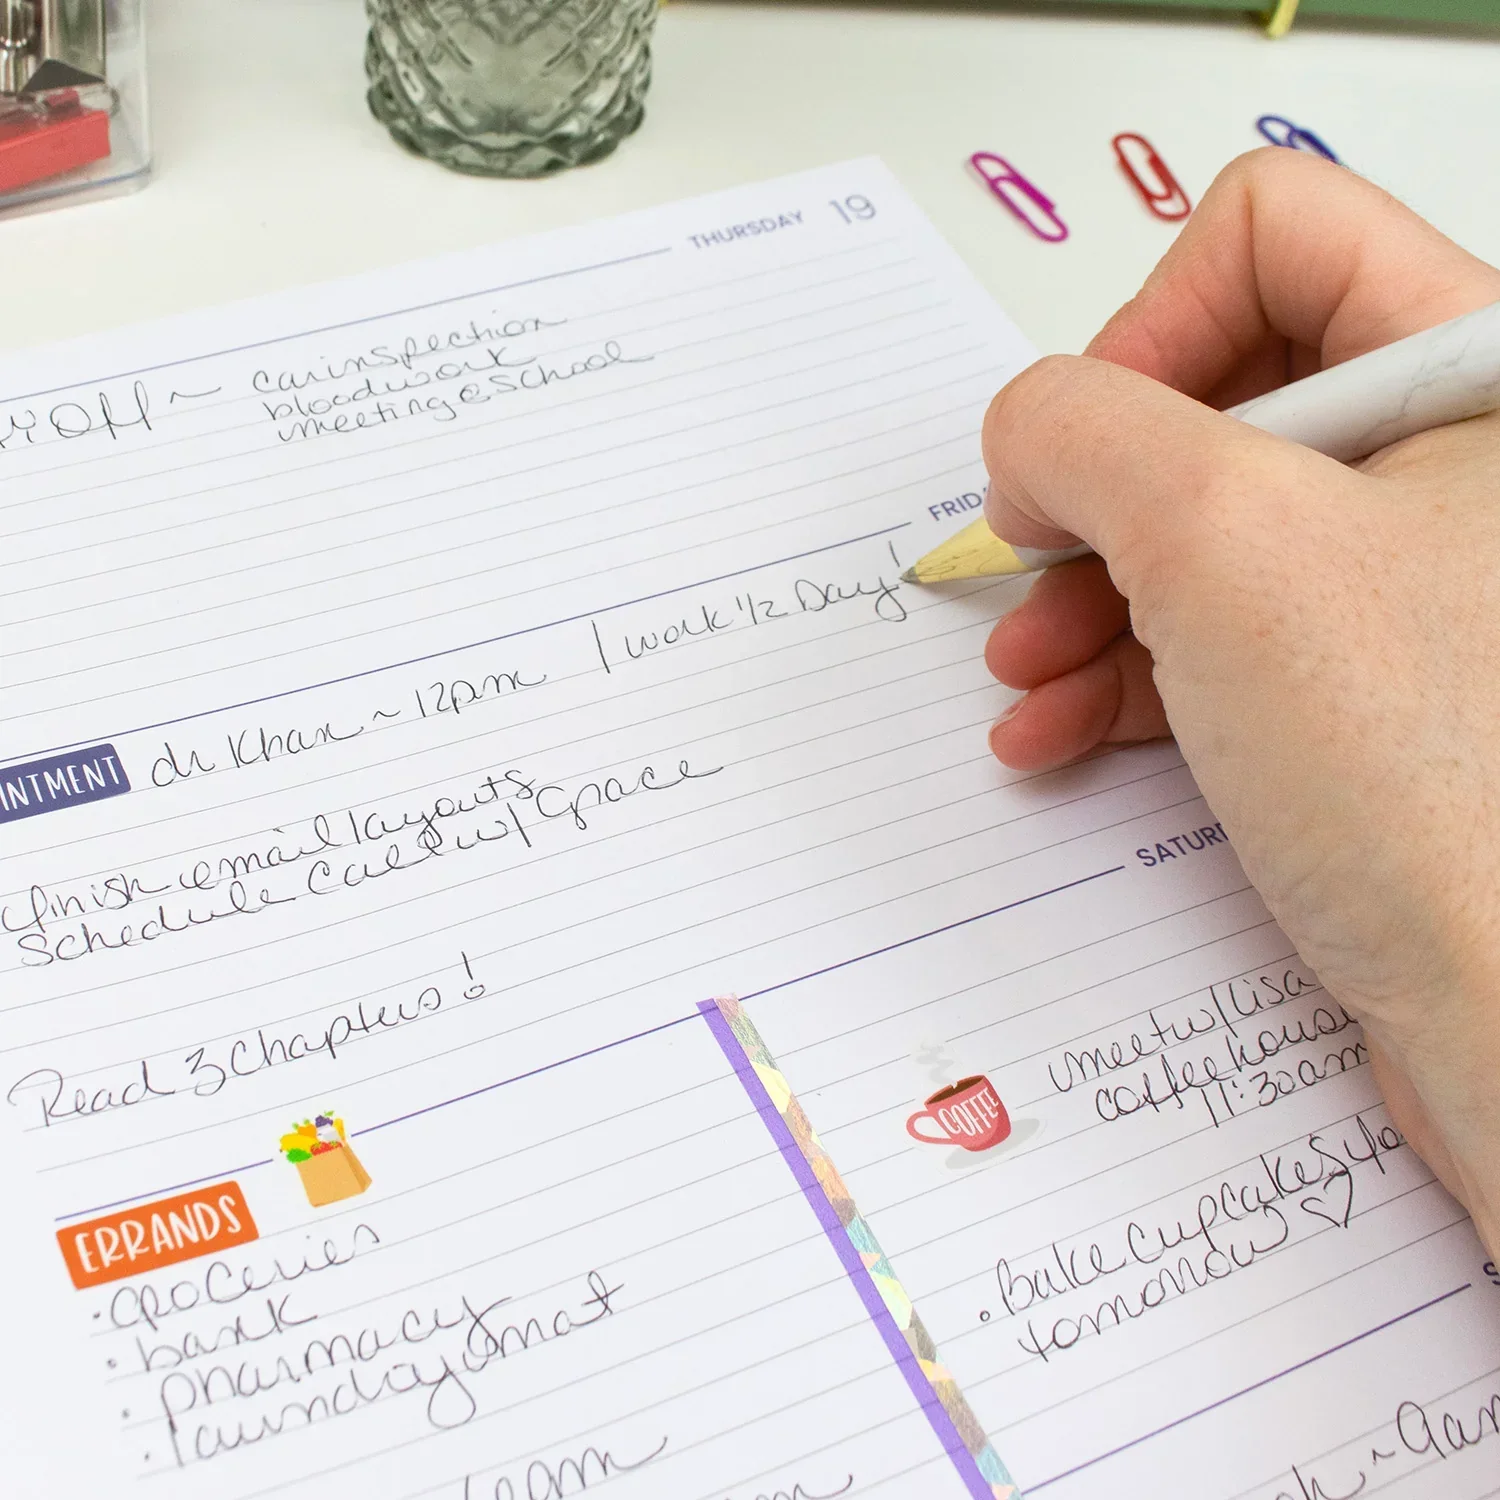 THURSDAY 19
Off ~ car inspection
bloodwork
meeting @ School
FRIDA
INTMENT dr Khan ~ 12pm | work 1/2 Day!
finish email layouts
Schedule Call w/ Grace
Read 3 Chapters!
SATUR
ERRANDS
• groceries
• bank
• pharmacy
• laundrymat
COFFEE
meet w/ Lisa
coffeehouse
11:30am
• Bake Cupcakes fo
tomorrow ♡
S
~ 9am